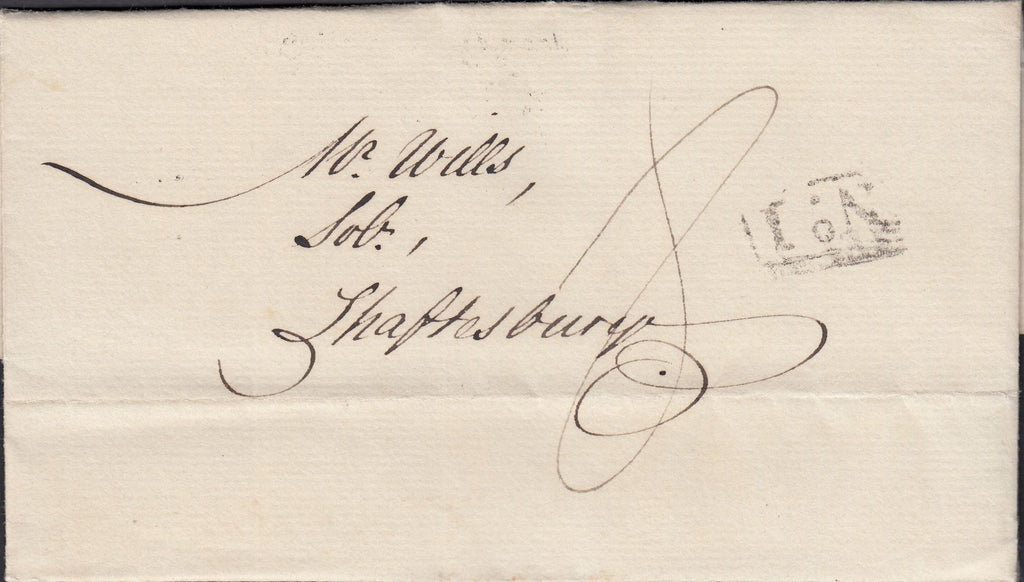 Mr. Wills,
Solr.,
Shaftesbury.
8